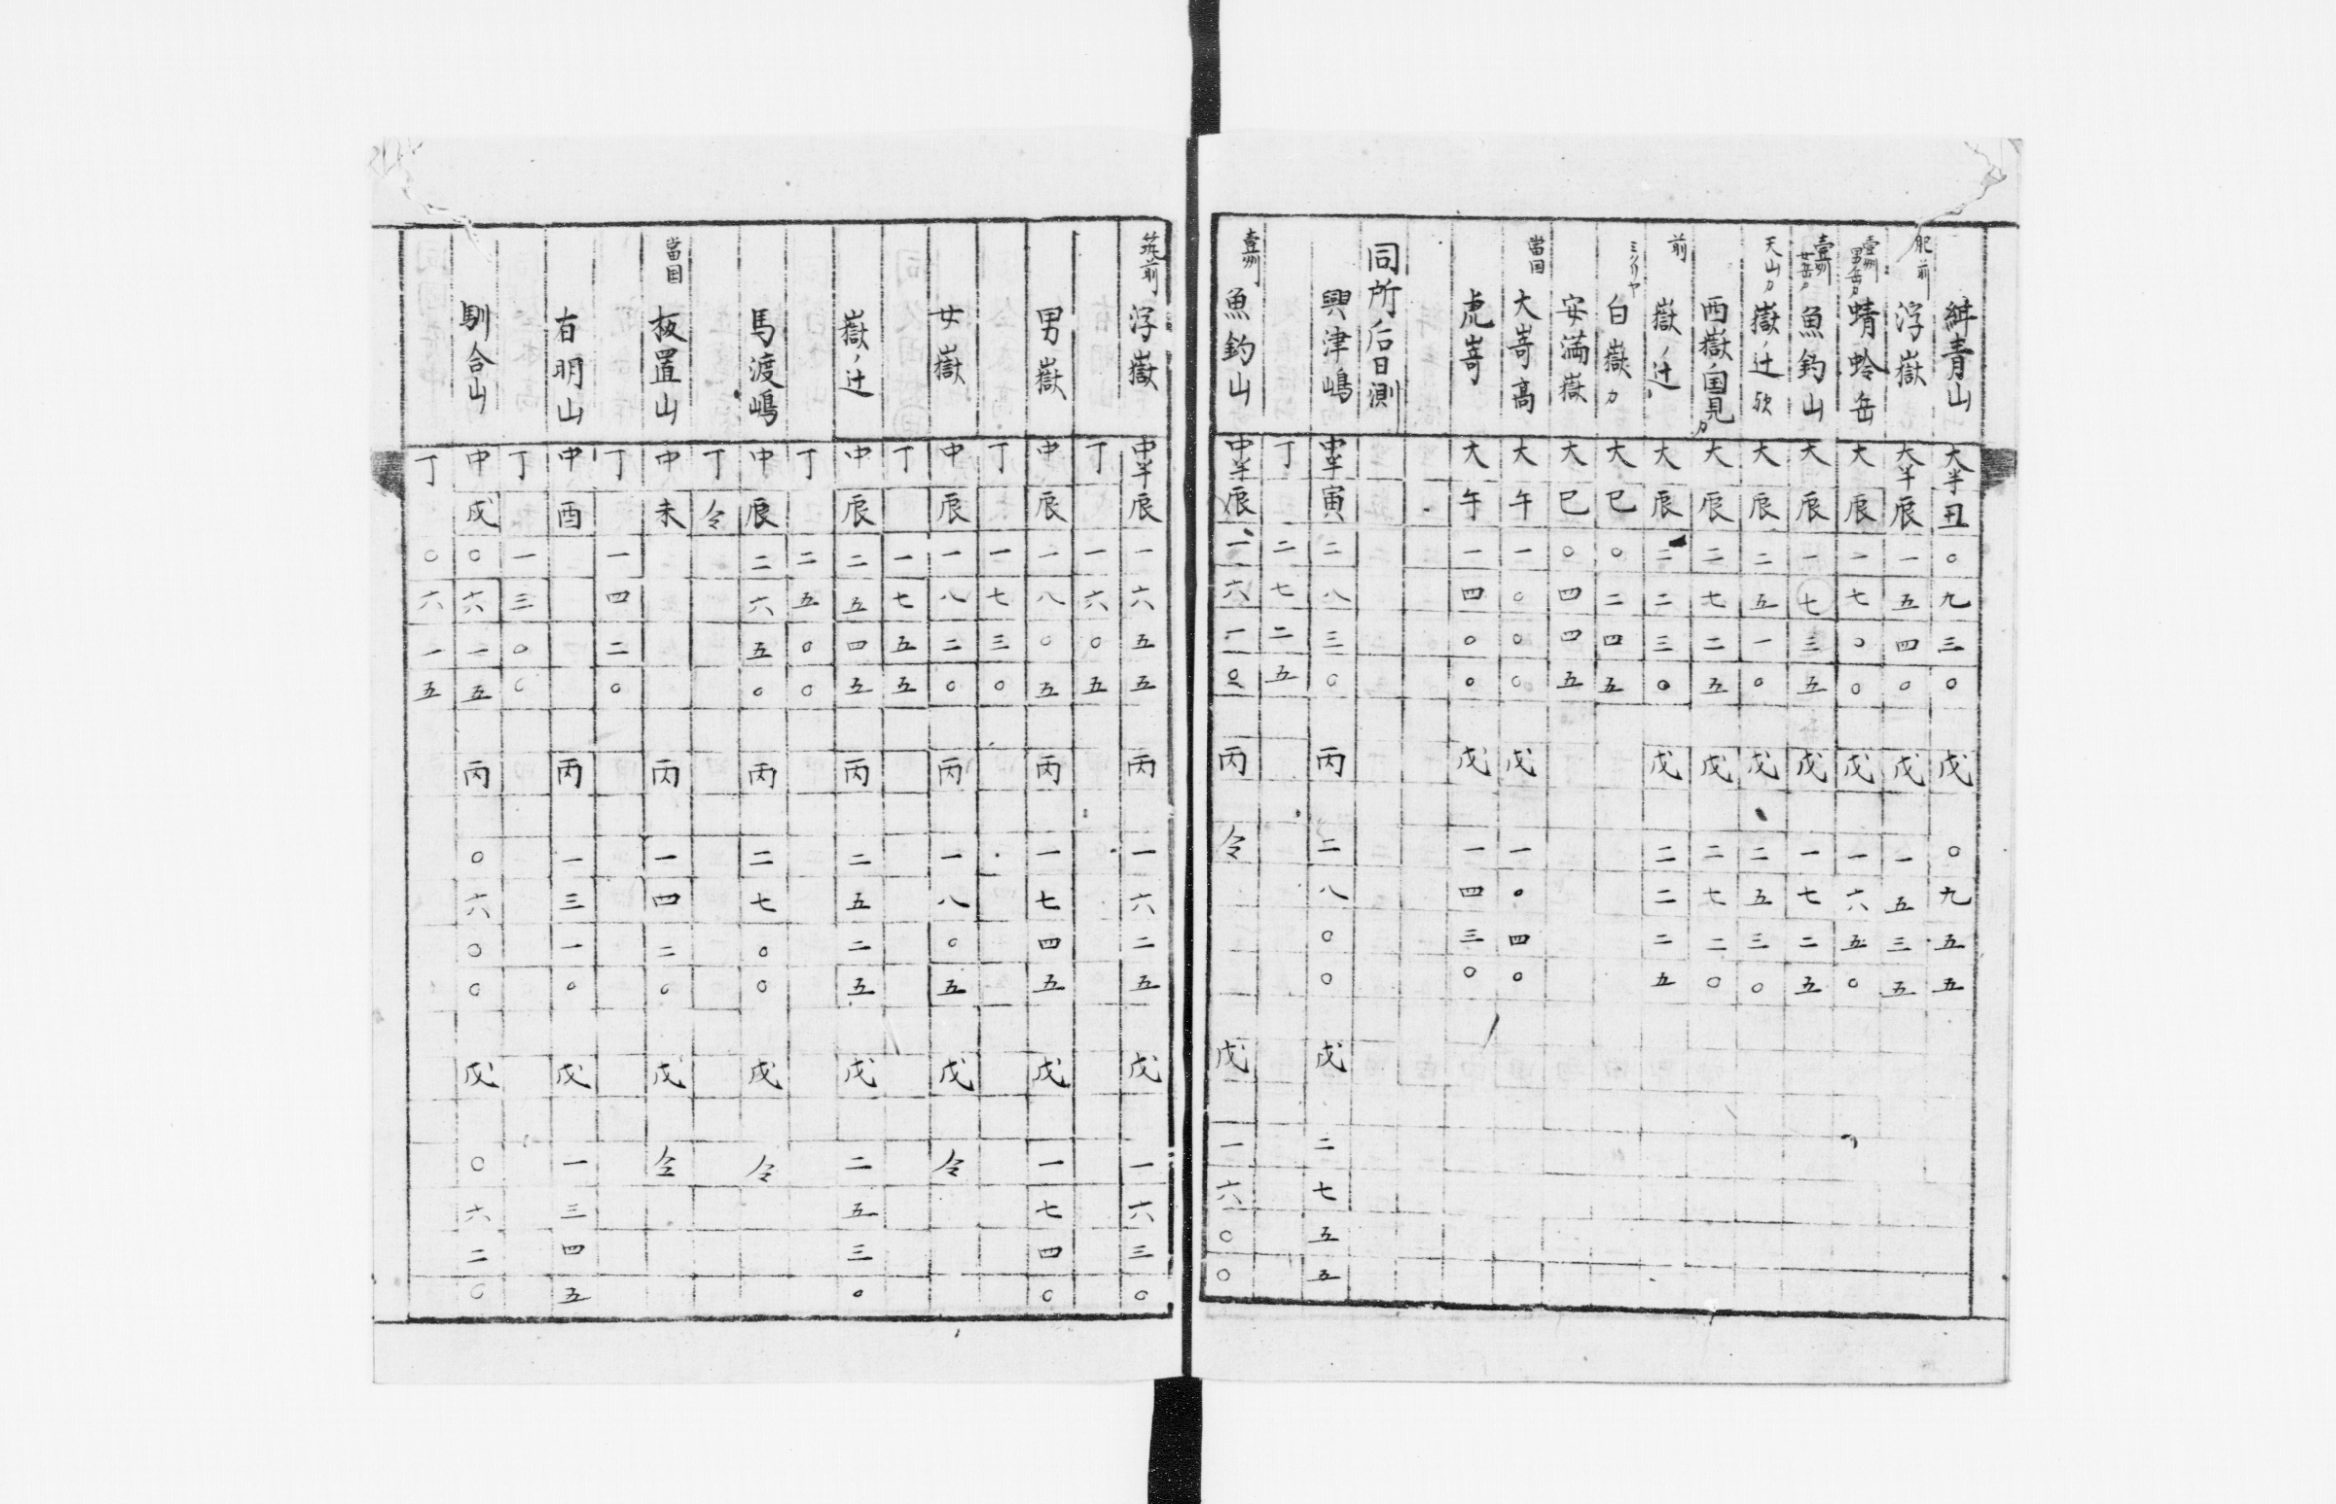 紺青山 大半 丑 〇九三〇 戊 〇九五五
肥前 浮嶽 大半 辰 一五四〇 戊 一五三五
壹州 男岳カ 蜻蛉岳 大 辰 一七〇〇 戊 一六五〇
壹州 女岳カ 魚釣山 大 辰 一七三五 戊 一七二五
天山カ 嶽ノ辻欤 大 辰 二五一〇 戊 二五三〇
西嶽ノ国見カ 大 辰 二七二五 戊 二七二〇
前 嶽ノ辻 大 辰 二二三〇 戊 二二二五
白嶽カ 大 巳 〇二四五
安満嶽 大 巳 〇四四五
當目 大嵜高 大 午 一〇〇〇 戊 一〇四〇
虎嵜 大 午 一四〇〇 戊 一四三〇
同所后日測
興津嶋 中半 寅 二八三〇 丙 二八〇〇 戊 二七五五
丁 二七二五
壹州 魚釣山 中半 辰 一六一〇 丙 仝 戊 一六〇〇
筑前 浮嶽 中半 辰 一六五五 丙 一六二五 戊 一六三〇
丁 一六〇五
男嶽 中 辰 一八〇五 丙 一七四五 戊 一七四〇
丁 一七三〇
女嶽 中 辰 一八二〇 丙 一八〇五 戊 仝
丁 一七五五
嶽ノ辻 中 辰 二五四五 丙 二五二五 戊 二五三〇
丁 二五〇〇
馬渡嶋 中 辰 二六五〇 丙 二七〇〇 戊 仝
丁 仝
當目 板置山 中 未 丙 一四二〇 戊 仝
丁 一四二〇
有明山 中 酉 丙 一三一〇 戊 一三四五
丁 一三〇〇
馴合山 中 戌 〇六一五 丙 〇六〇〇 戊 〇六二〇
丁 〇六一五